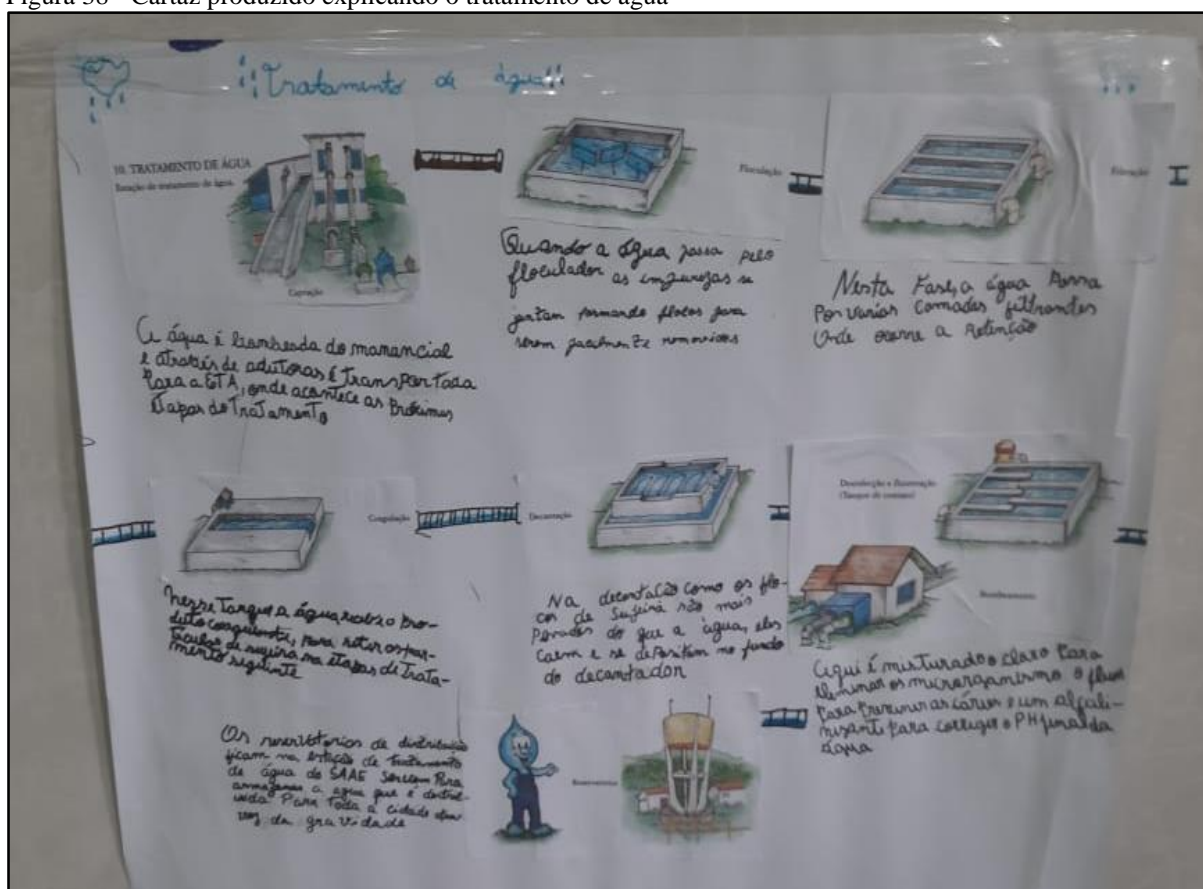 Figura 38 - Cartaz produzido explicando o tratamento de água
Tratamento de água
10. TRATAMENTO DE ÁGUA
Estação de tratamento de água.
Captação
A água é bombeada do manancial
e através de adutoras é transportada
para a ETA, onde acontece as próximas
etapas do tratamento
Floculação
Quando a água passa pelo
floculador as impurezas se
juntam formando flocos para
serem facilmente removidos
Filtração
Nesta Fase, a água Passa
Por varias camadas filtrantes
Onde ocorre a Retenção
Coagulação
nesse Tanque a água recebe o pro-
duto coagulante, para retirar as par-
tículas de sujeira na etapas de Trata-
mento seguinte
Decantação
Na decantação como os flo-
cos de sujeira são mais
Pesados do que a água, eles
Caem e se depositam no fundo
do decantador
Desinfecção e fluoretação
(Tanque de contato)
Bombeamento
Aqui é misturado o cloro Para
eliminar os microrganismo o fluor
Para Prevenir as cáries e um alcali-
nisante para corrigir o PH final da
água
Os reservatorios de distribuição
ficam na estação de tratamento
de água do SAAE Servem Para
armazenar a agua que é distri-
uida Para Toda a cidade
da gravidade
Reservatórios